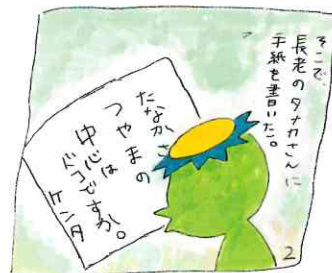 そこで、
長老のタナカさんに
手紙を書いた。
たなかさ
つやまの
中心は
ドコですか。
ケンタ
2